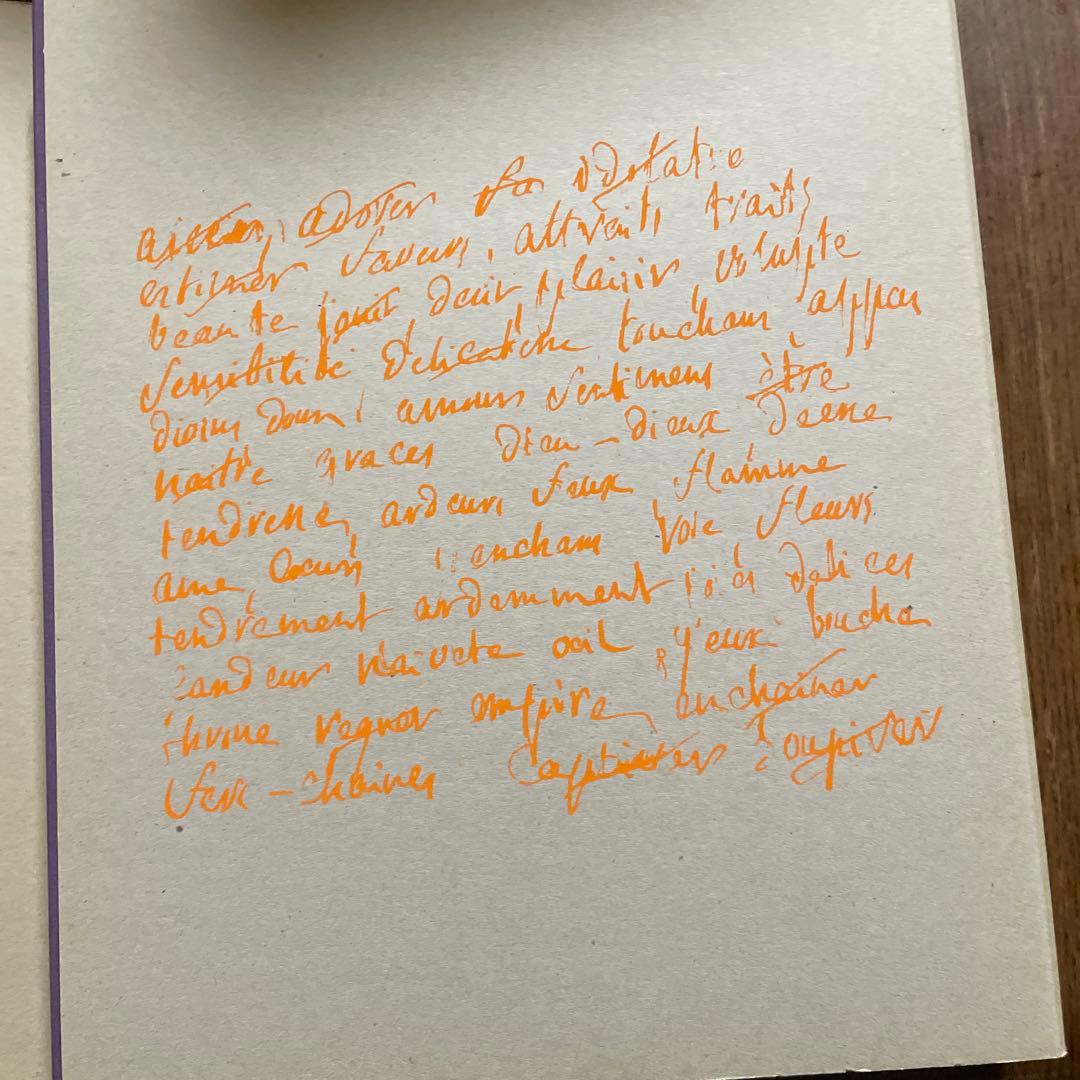 adorer
estimer faveurs, attraits traits
beaute jouir desir, plaisir, volupte
sensibilité délicatesse touchans appas
divins doux amours sentimens être
naitre graces dieu - dieux Déesse
tendresse, ardeurs feux flamme
ame, coeurs encham voie fleurs
tendrement ardemment delices
candeur naivete oeil, yeux bouche
throne regner empire, enchainer
fers - chaines captiver soupirer